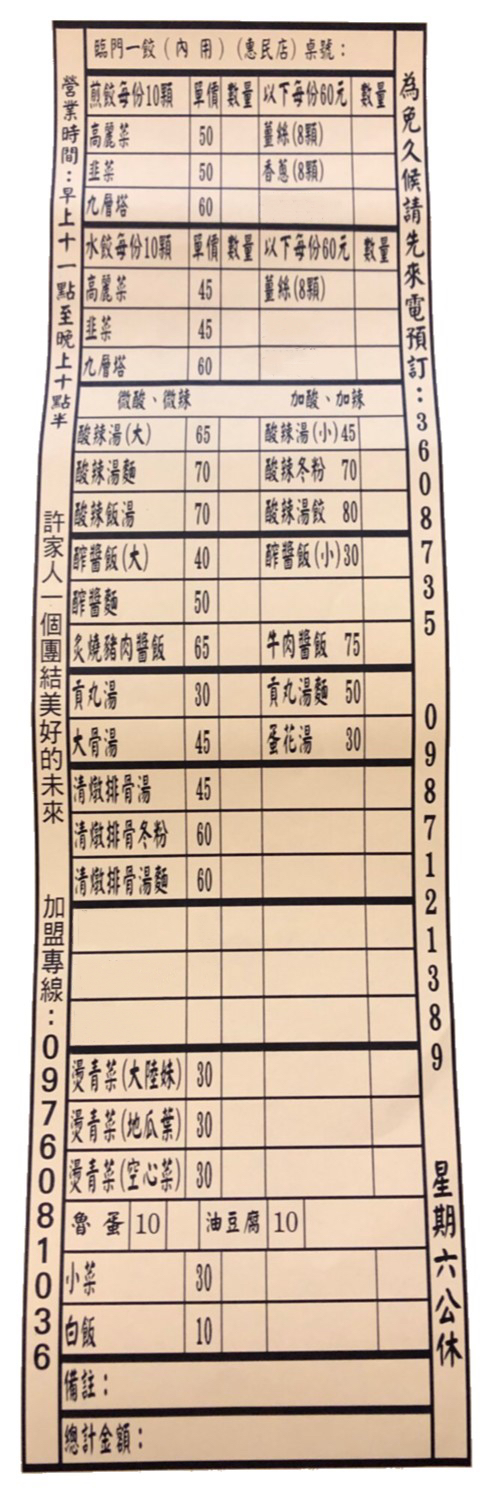 臨門一餃(內用)(惠民店)桌號:
煎餃每份10顆 單價 數量 以下每份60元 數量
高麗菜 50 薑絲(8顆)
韭菜 50 香蔥(8顆)
九層塔 60
水餃每份10顆 單價 數量 以下每份60元 數量
高麗菜 45 薑絲(8顆)
韭菜 45
九層塔 60
微酸、微辣 加酸、加辣
酸辣湯(大) 65 酸辣湯(小)45
酸辣湯麵 70 酸辣冬粉 70
酸辣飯湯 70 酸辣湯餃 80
醡醬飯(大) 40 醡醬飯(小)30
醡醬麵 50
炙燒豬肉醬飯 65 牛肉醬飯 75
貢丸湯 30 貢丸湯麵 50
大骨湯 45 蛋花湯 30
清燉排骨湯 45
清燉排骨冬粉 60
清燉排骨湯麵 60
燙青菜(大陸妹) 30
燙青菜(地瓜葉) 30
燙青菜(空心菜) 30
魯蛋 10 油豆腐 10
小菜 30
白飯 10
備註:
總計金額:
營業時間:早上十一點至晚上十點半
許家人一個團結美好的未來
加盟專線:0976081036
為免久候請先來電預訂:3608735 0987121389
星期六公休